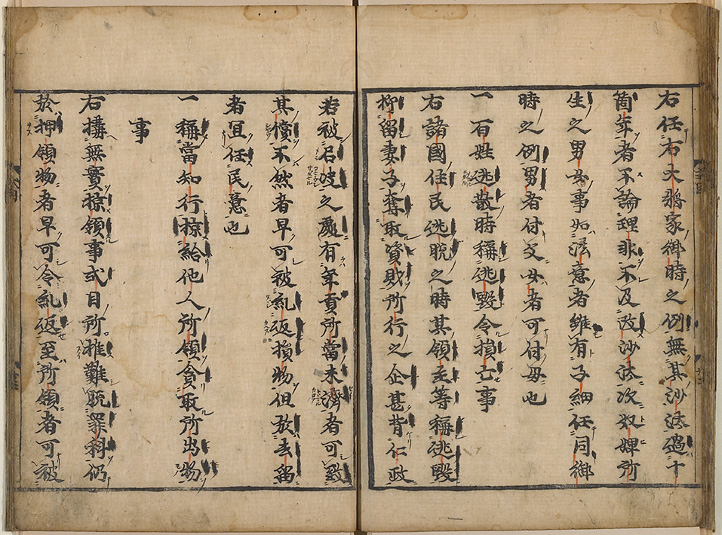 右任右大將家御時之例無其沙汰過十
箇年者不論理非不及改沙汰次奴婢所
生之男女事如法意者雖有子細任同御
時之例男者付父女者可付母也
一 百姓逃散時稱逃毀令損亡事
右諸國住民逃脱之時其領主等稱逃毀
抑留妻子奪取資財所行之企甚背仁政
若被召决之處有年貢所當未濟者可致
其償不然者早可被糺返損物但於去留
者宜任民意也
一 稱當知行掠給他人所領貪取所出物
事
右搆無實掠領事式目所推難脱罪科仍
於押領物者早可令糺返至所領者可被